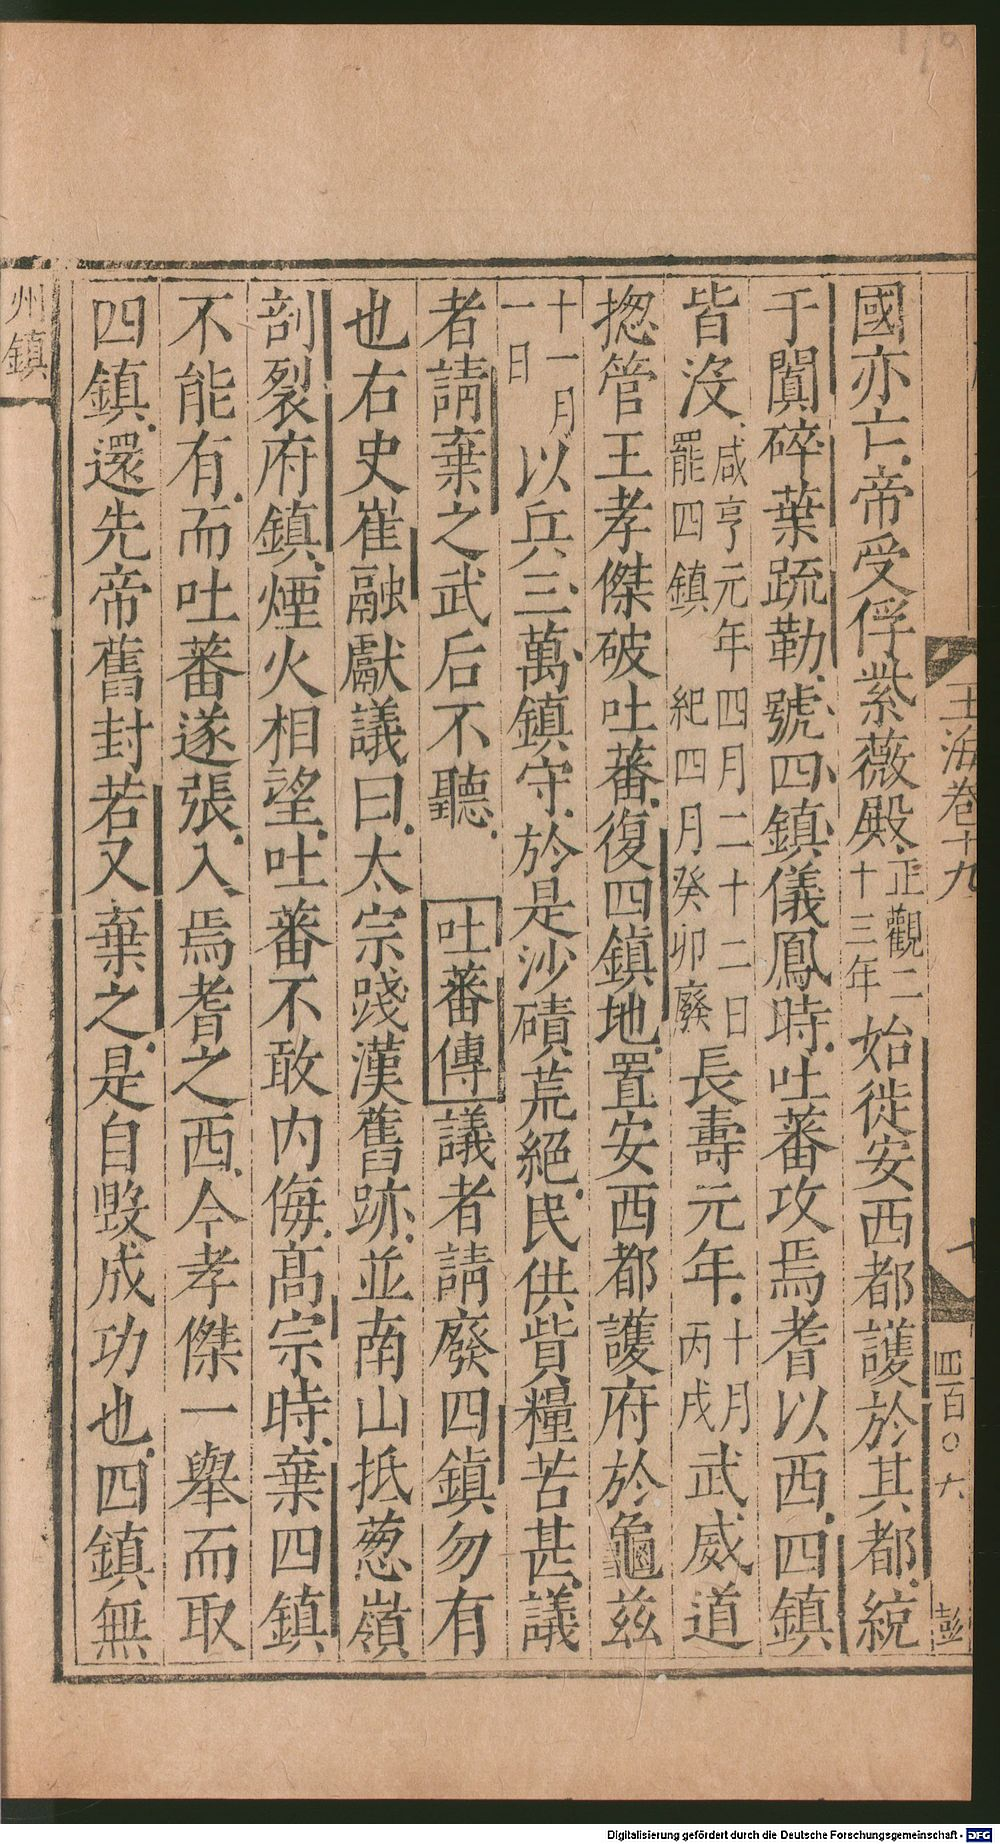 玉海卷十九
四百〇六
彭
國亦亡帝受俘紫薇殿正觀二十三年始徙安西都護於其都統
于闐碎葉疏勒號四鎮儀鳳時吐蕃攻焉耆以西四鎮
皆沒咸亨元年四月二十二日罷四鎮紀四月癸卯廢長壽元年十月丙戌武威道
揔管王孝傑破吐蕃復四鎮地置安西都護府於龜茲
十一月一日以兵三萬鎮守於是沙磧荒絕民供貲糧苦甚議
者請棄之武后不聽吐蕃傳議者請廢四鎮勿有
也右史崔融獻議曰太宗踐漢舊跡並南山抵葱嶺
剖裂府鎮煙火相望吐蕃不敢内侮高宗時棄四鎮
不能有而吐蕃遂張入焉耆之西今孝傑一舉而取
四鎮還先帝舊封若又棄之是自毀成功也四鎮無
州鎮
Digitalisierung gefördert durch die Deutsche Forschungsgemeinschaft - DFG